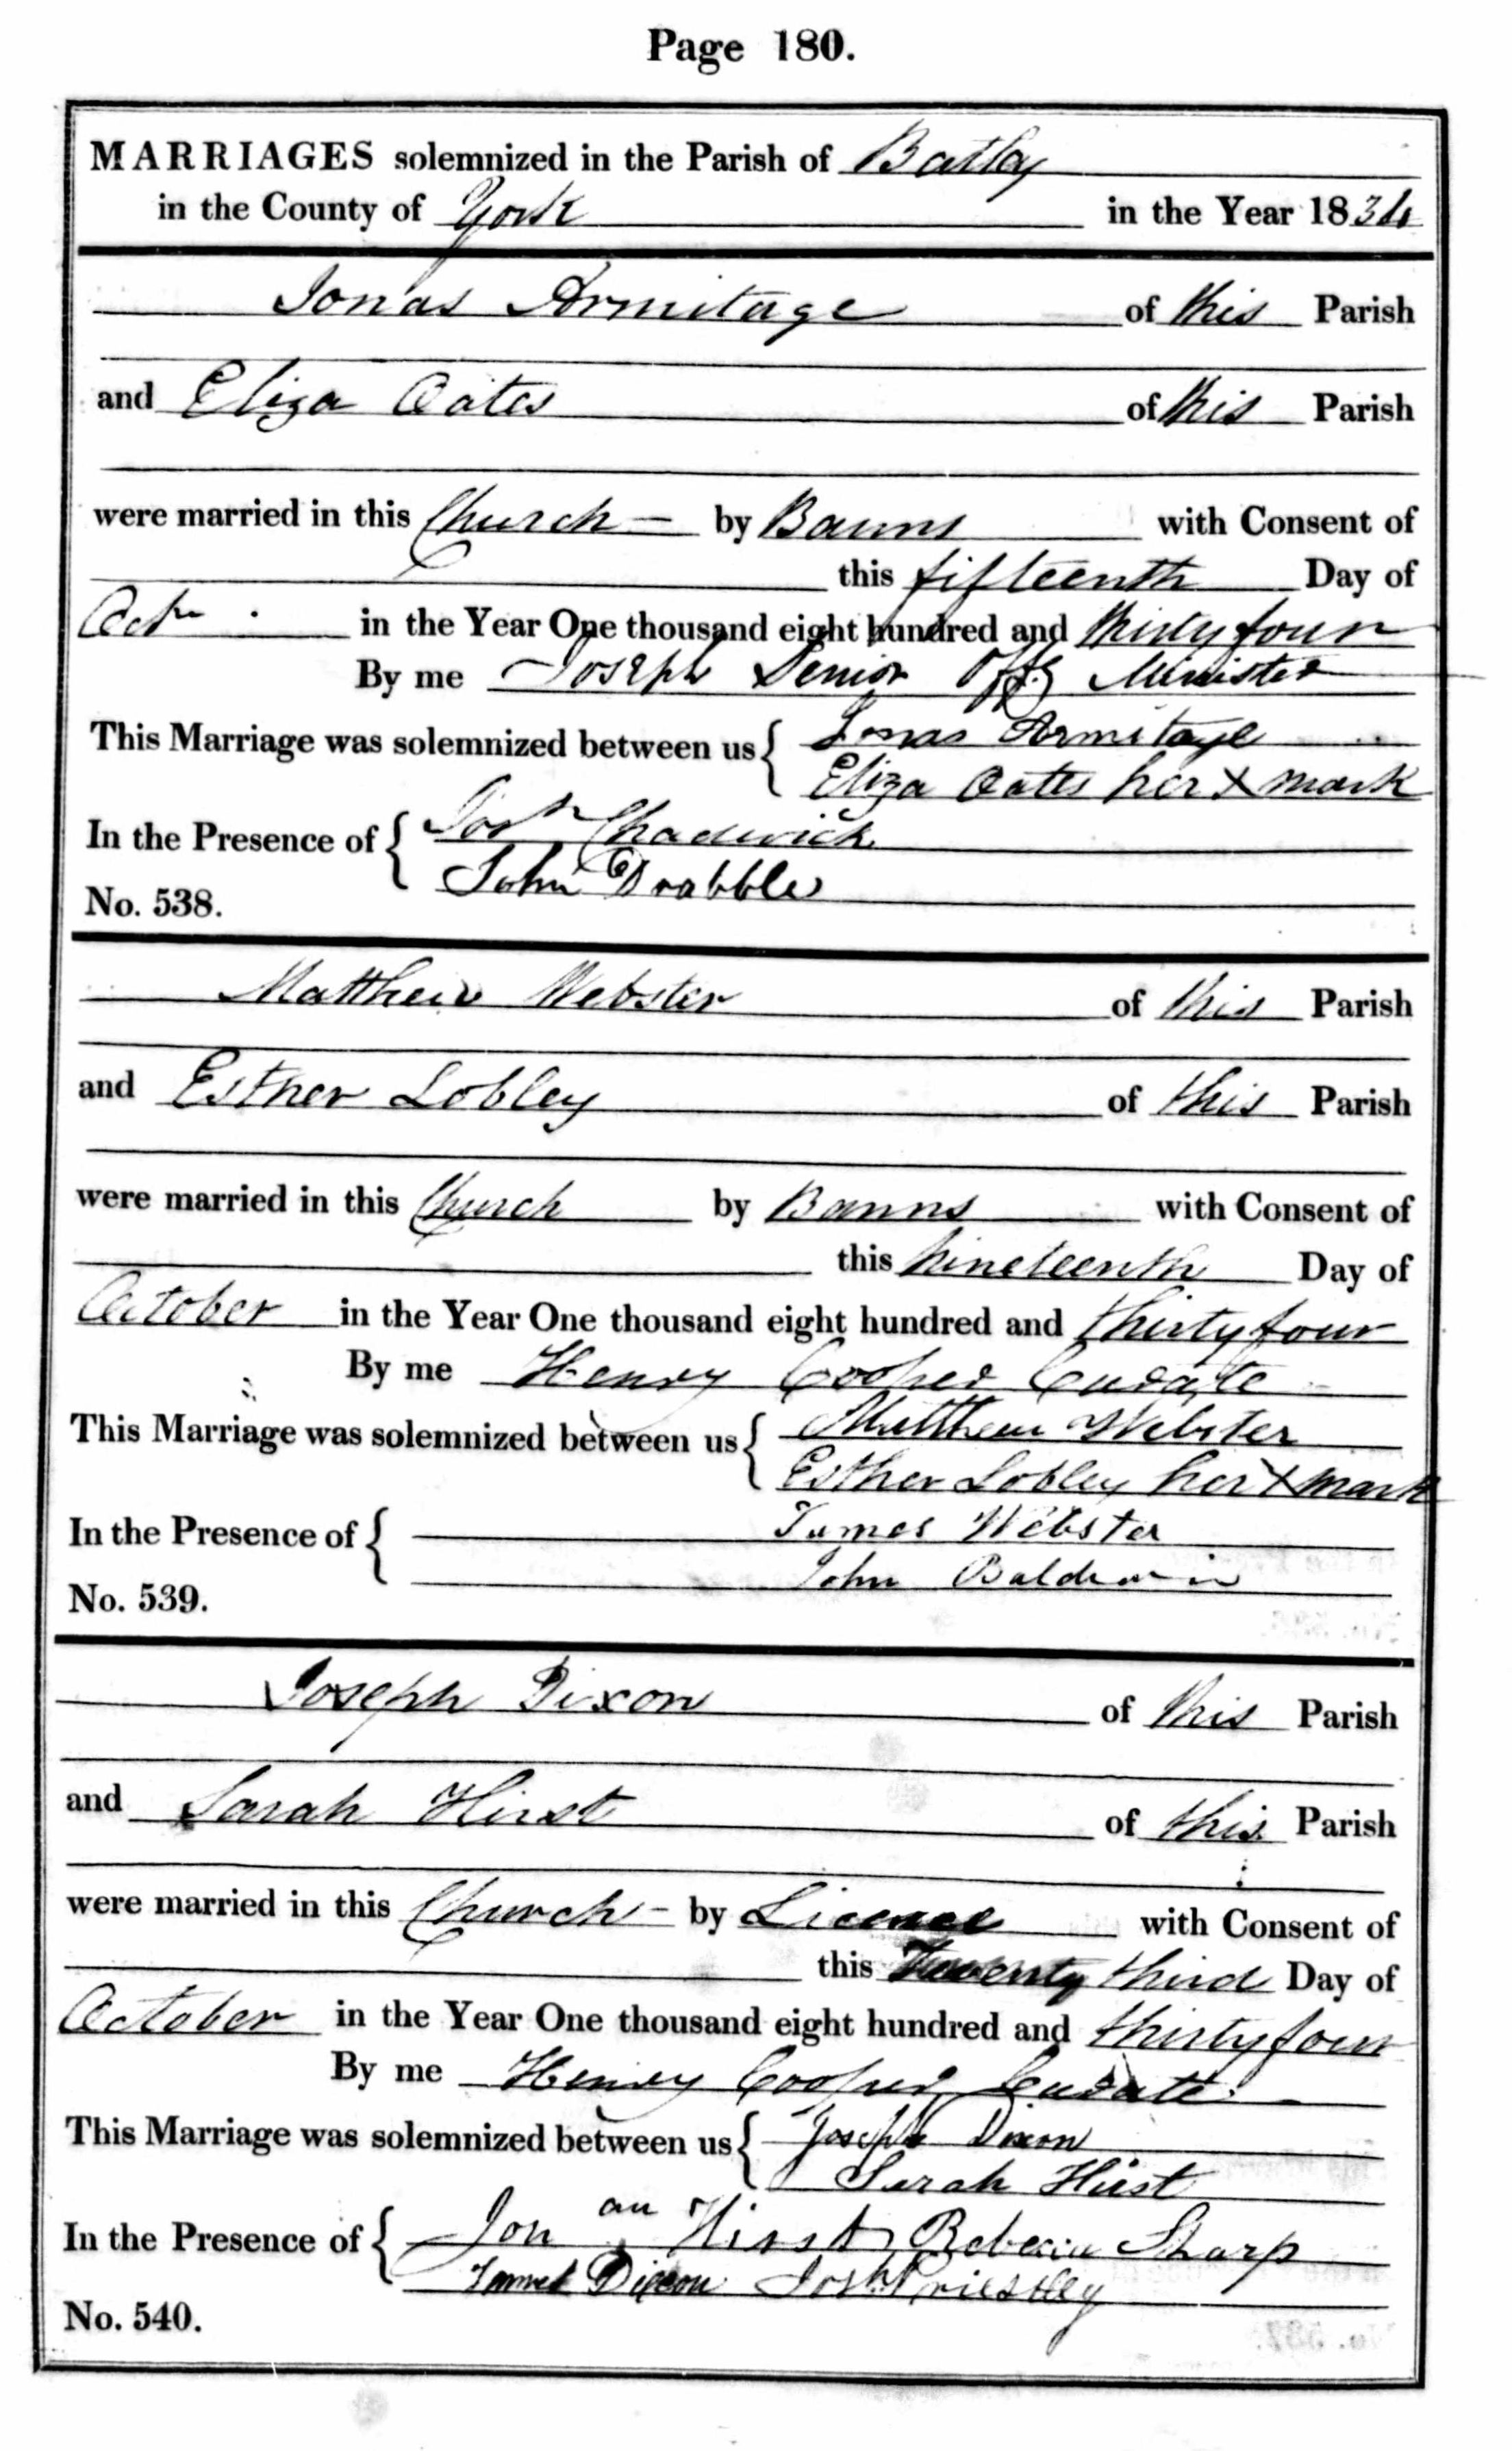 Page 180.
MARRIAGES solemnized in the Parish of Batley
in the County of York in the Year 1834
Jonas Armitage of this Parish
and Eliza Oates of this Parish
were married in this Church by Banns with Consent of
this fifteenth Day of
Octr in the Year One thousand eight hundred and thirty four
By me Joseph Senior Offg Minister
This Marriage was solemnized between us { Jonas Armitage
Eliza Oates her x mark
In the Presence of { Josh Chadwick
John Drabble
No. 538.
Matthew Webster of this Parish
and Esther Lobley of this Parish
were married in this Church by Banns with Consent of
this nineteenth Day of
October in the Year One thousand eight hundred and thirty four
By me Henry Cooper Curate
This Marriage was solemnized between us { Matthew Webster
Esther Lobley her x mark
In the Presence of { James Webster
John Baldwin
No. 539.
Joseph Dixon of this Parish
and Sarah Hirst of this Parish
were married in this Church by Licence with Consent of
this Twenty third Day of
October in the Year One thousand eight hundred and thirty four
By me Henry Cooper Curate
This Marriage was solemnized between us { Joseph Dixon
Sarah Hirst
In the Presence of { Jonan Hirst Rebecca Sharp
Dixon Josh Priestley
No. 540.